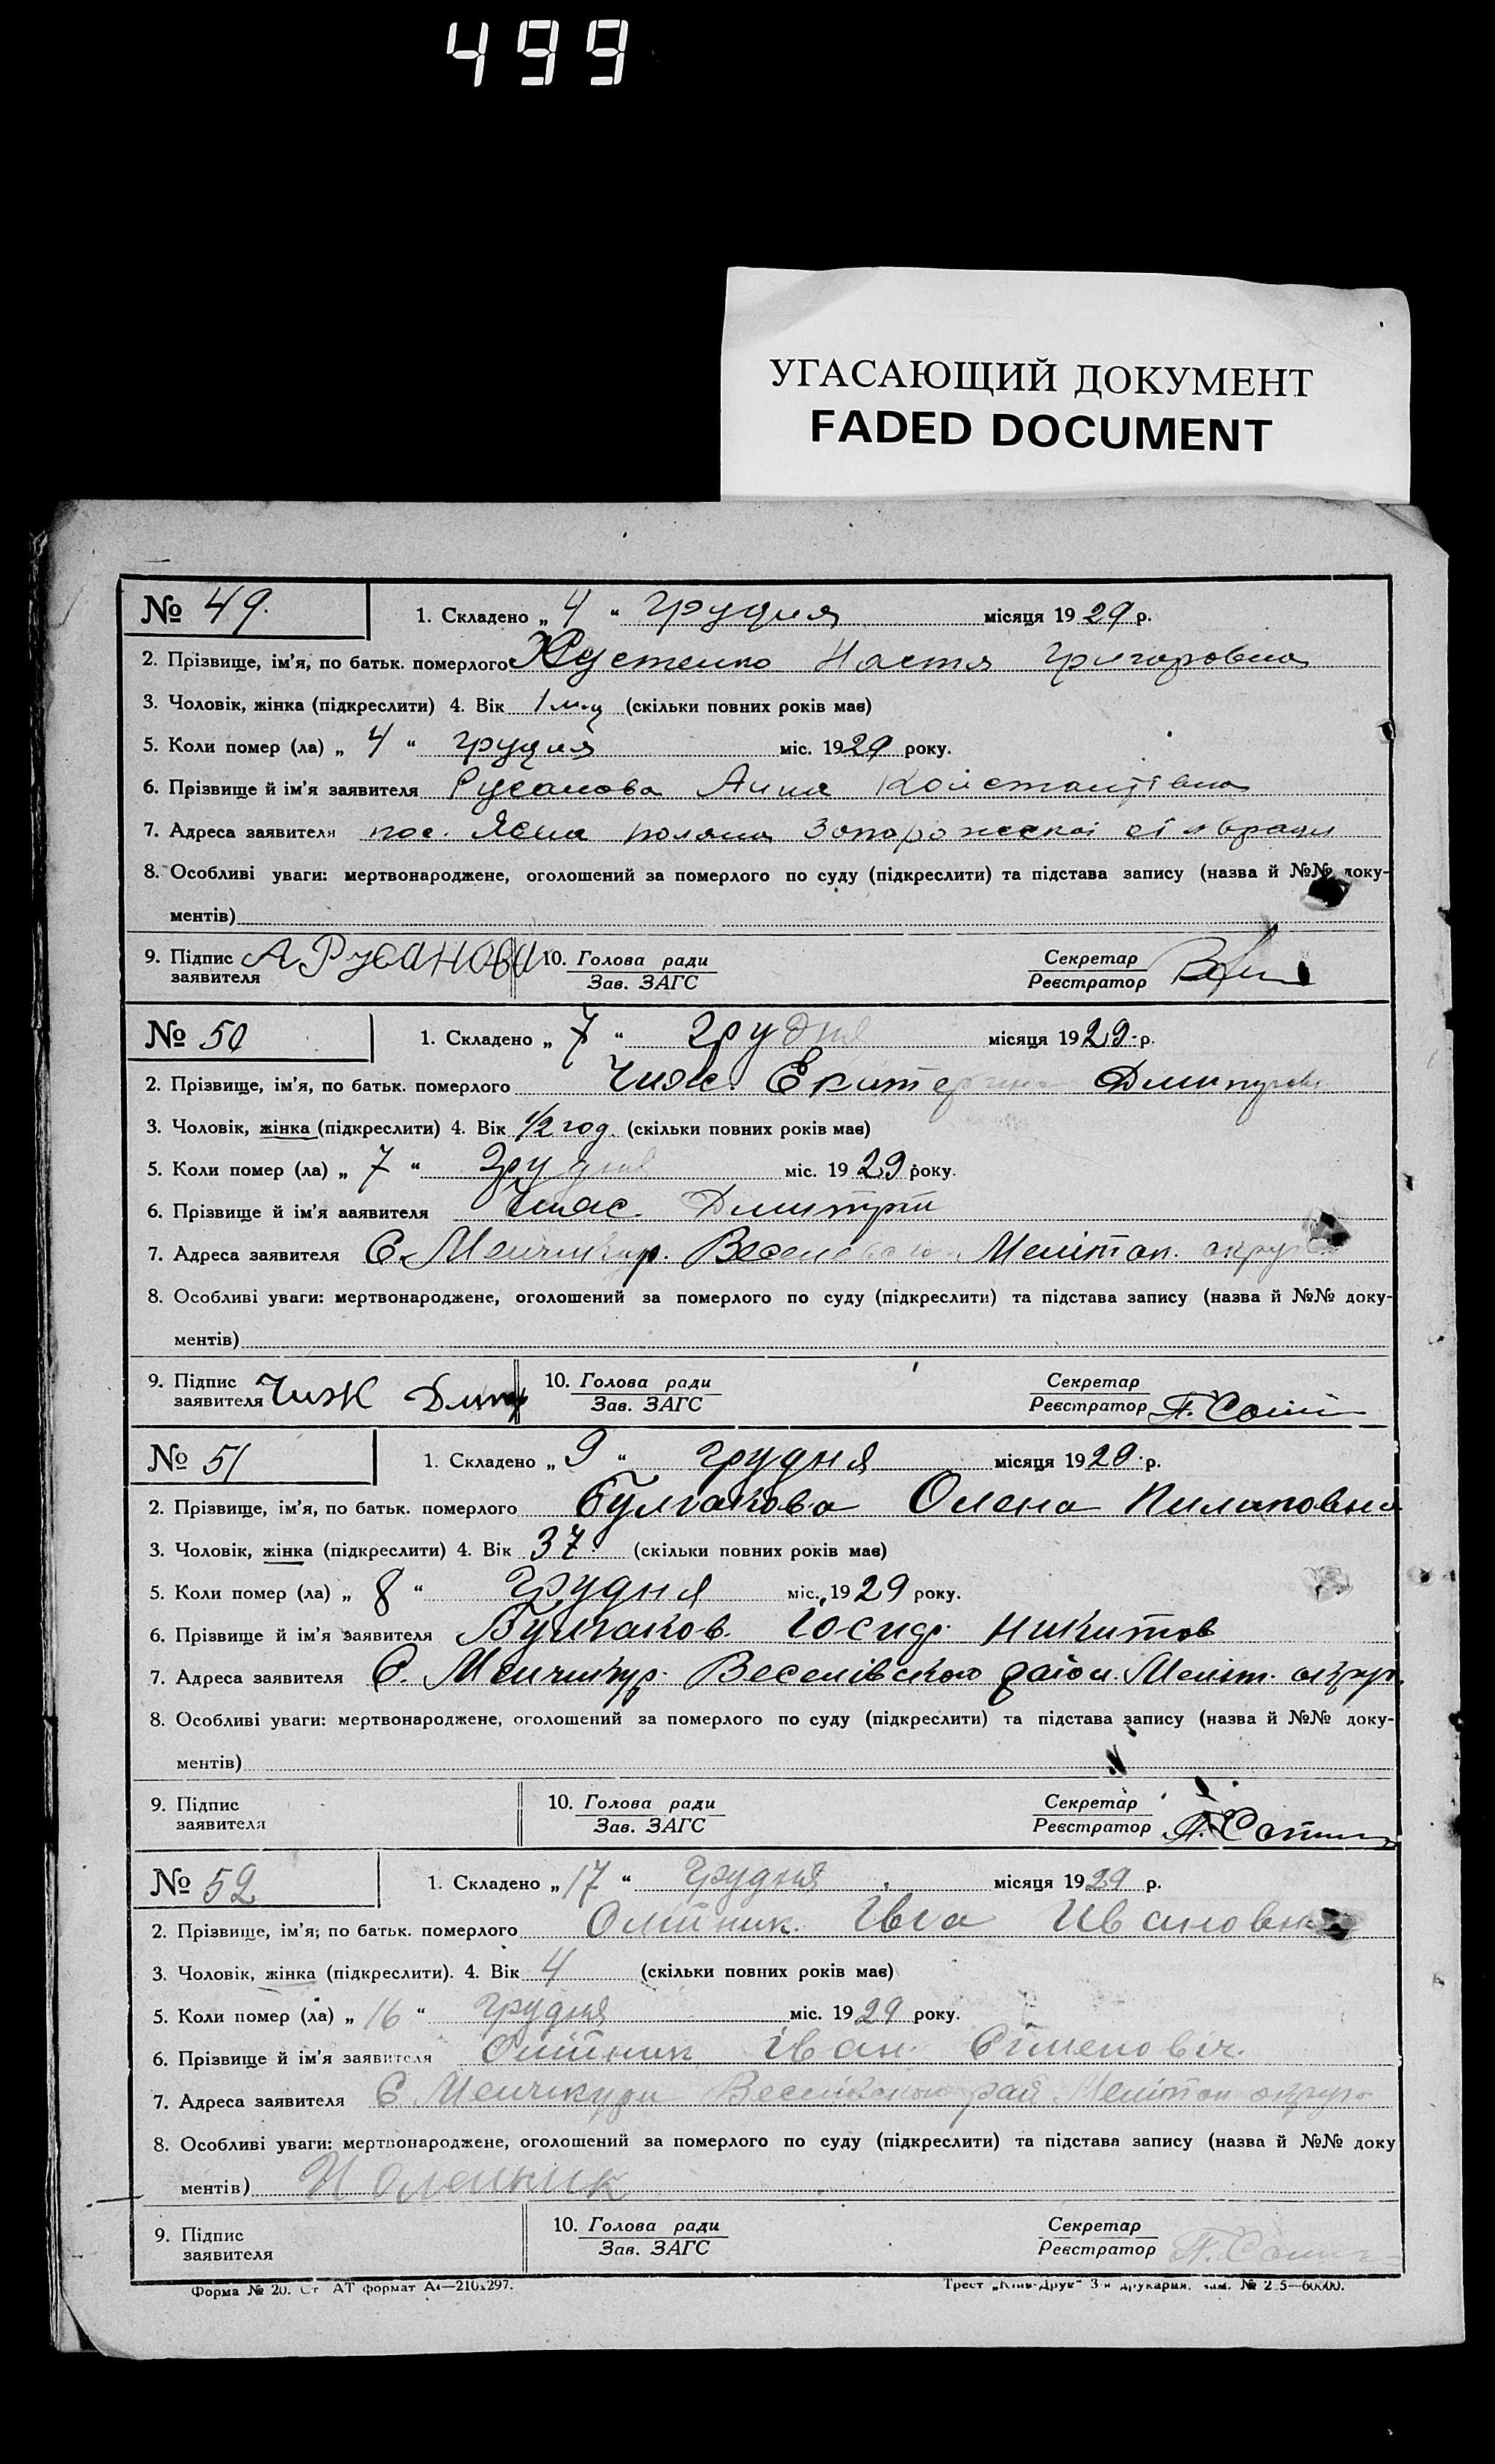 499
УГАСАЮЩИЙ ДОКУМЕНТ
FADED DOCUMENT
№ 49. 1. Складено „ 4 “ грудня місяця 1929 р.
2. Прізвище, ім'я, по батьк. померлого Настя Григоровна
3. Чоловік, жінка (підкреслити) 4. Вік 1 м-ц (скільки повних років має)
5. Коли помер (ла) „ 4 “ грудня міс. 1929 року.
6. Прізвище й ім'я заявителя Русанова Анна
7. Адреса заявителя пос. Ясна поляна
8. Особливі уваги: мертвонароджене, оголошений за померлого по суду (підкреслити) та підстава запису (назва й №№ доку-
ментів)
9. Підпис заявителя А Русанова 10. Голова ради Зав. ЗАГС Секретар Реєстратор
№ 50 1. Складено „ 7 “ грудня місяця 1929 р.
2. Прізвище, ім'я, по батьк. померлого Чиж. Екатерина
3. Чоловік, жінка (підкреслити) 4. Вік 1/2 год. (скільки повних років має)
5. Коли помер (ла) „ 7 “ грудня міс. 1929 року.
6. Прізвище й ім'я заявителя Чиж. Дмитрій
7. Адреса заявителя С. Менчикур. Мелітоп. округи
8. Особливі уваги: мертвонароджене, оголошений за померлого по суду (підкреслити) та підстава запису (назва й №№ доку-
ментів)
9. Підпис заявителя Чиж 10. Голова ради Зав. ЗАГС Секретар Реєстратор
№ 51 1. Складено „ 9 “ грудня місяця 1929 р.
2. Прізвище, ім'я, по батьк. померлого Булгакова Олена Пилиповна
3. Чоловік, жінка (підкреслити) 4. Вік 37 (скільки повних років має)
5. Коли помер (ла) „ 8 “ грудня міс. 1929 року.
6. Прізвище й ім'я заявителя Булгаков Іосиф Никитов
7. Адреса заявителя С. Менчикур. Веселівського район. Меліт. округ.
8. Особливі уваги: мертвонароджене, оголошений за померлого по суду (підкреслити) та підстава запису (назва й №№ доку-
ментів)
9. Підпис заявителя 10. Голова ради Зав. ЗАГС Секретар Реєстратор
№ 52 1. Складено „ 17 “ грудня місяця 1929 р.
2. Прізвище, ім'я, по батьк. померлого Олійник. Івга Ивановна
3. Чоловік, жінка (підкреслити). 4. Вік 4 (скільки повних років має)
5. Коли помер (ла) „ 16 “ грудня міс. 1929 року.
6. Прізвище й ім'я заявителя Олійник Іван Сіменовіч.
7. Адреса заявителя С Менчикури рай Мелітоп округи
8. Особливі уваги: мертвонароджене, оголошений за померлого по суду (підкреслити) та підстава запису (назва й №№ доку
ментів) И Олейник
9. Підпис заявителя 10. Голова ради Зав. ЗАГС Секретар Реєстратор
Форма № 20. Ст АТ формат А4—210x297. Трест „Київ-Друк“ 3-я друкарня.